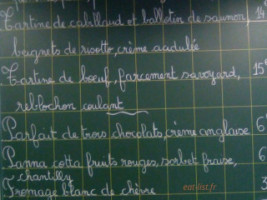 Tartine de cabillaud et ballotin de saumon, 14
beignets de risotto, crème acidulée
Tartine de boeuf, farcement savoyard, 15€
reblochon coulant
Parfait de trois chocolats, crème anglaise 6
Panna cotta fruits rouges, sorbet fraise, 6
chantilly
Fromage blanc de chèvre 3